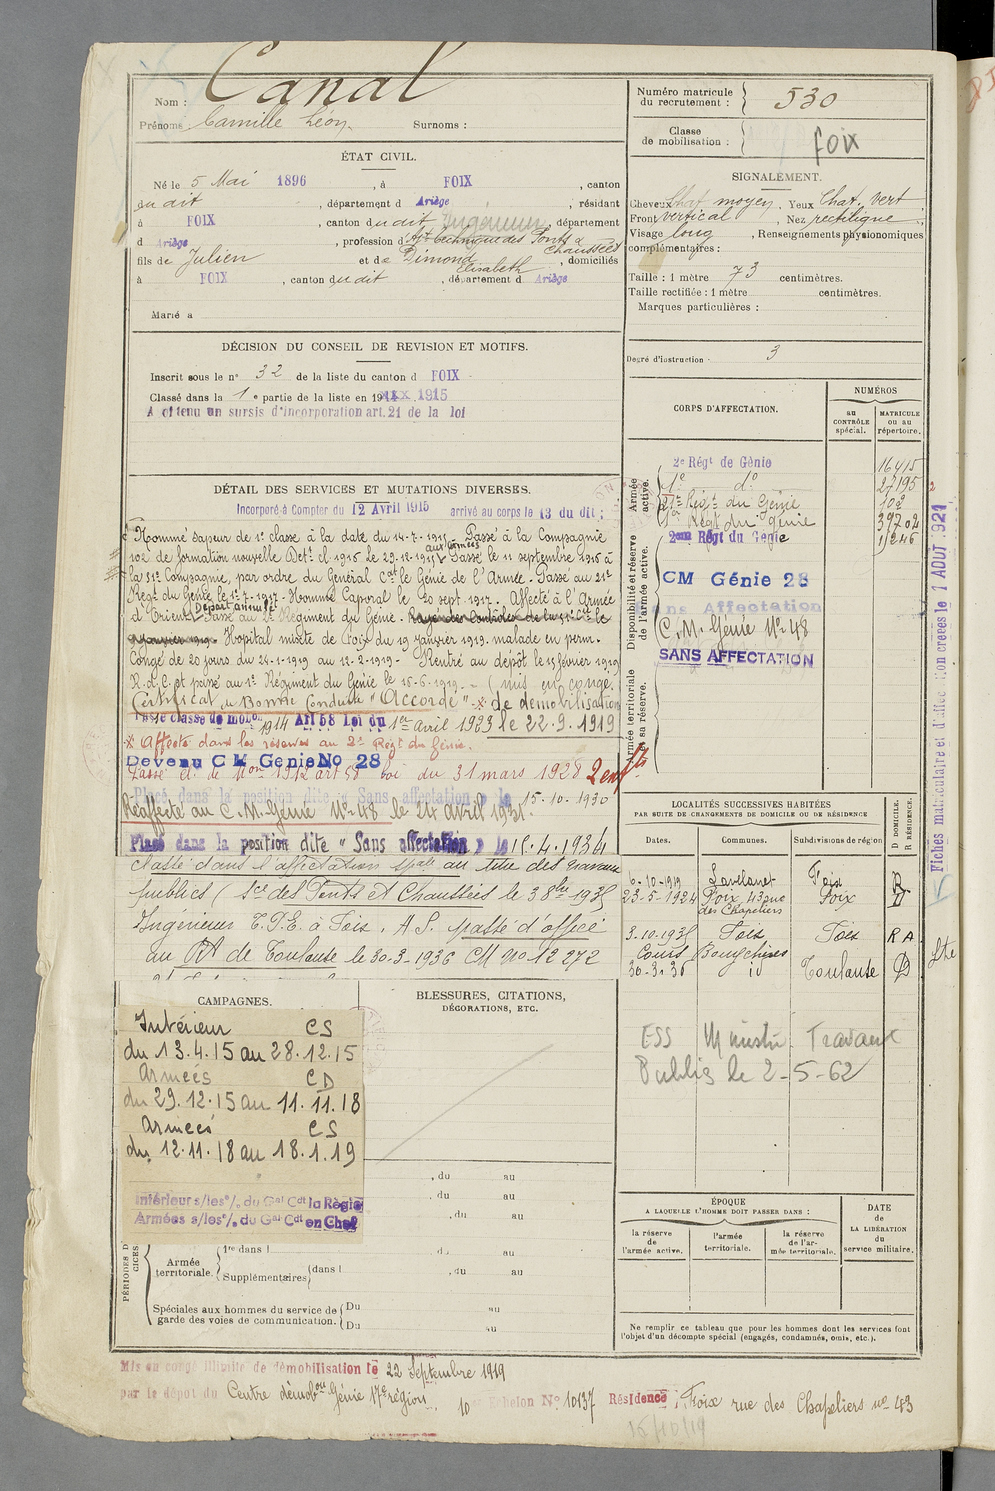 Nom : Canal
Prénoms Camille Léon Surnoms :
Numéro matricule du recrutement : 530
Classe de mobilisation : foix
ÉTAT CIVIL.
Né le 5 Mai 1896, à FOIX, canton
du dit, département d Ariège, résidant
à FOIX, canton du dit, Ingénieur, département
d Ariège, profession d'Agt technique des Ponts & Chaussées
fils de Julien et de Dimond Elisabeth, domiciliés
à FOIX, canton du dit, département d Ariège
Marié a
SIGNALEMENT.
Cheveux Chat. moyen, Yeux Chat. vert
Front vertical, Nez rectiligne
Visage long, Renseignements physionomiques
complémentaires :
Taille : 1 mètre 73 centimètres.
Taille rectifiée : 1 mètre centimètres.
Marques particulières :
Degré d'instruction : 3
DÉCISION DU CONSEIL DE REVISION ET MOTIFS.
Inscrit sous le n° 32 de la liste du canton d FOIX
Classé dans la 1e partie de la liste en 1914 xxx 1915
A obtenu un sursis d'incorporation art. 21 de la loi
DÉTAIL DES SERVICES ET MUTATIONS DIVERSES.
Incorporé à Compter du 12 Avril 1915 arrivé au corps le 13 du dit ;
Nommé sapeur de 1e classe à la date du 14-7-1915 Passé à la Compagnie
102 de formation nouvelle Dett. el. 1915 le 29-12-1915 aux Armées Passé le 11 septembre 1916 à
la 51e Compagnie, par ordre du Général Ct le Génie de l'Armée. Passé au 21e
Régt du Génie le 1er-7-1917. Nommé Caporal le 20 sept. 1917. Affecté à l'Armée
d'Orient Départ annulé Passé au 2e Régiment du Génie.
Hopital mixte de Foix du 19 janvier 1919. malade en perm.
Congé de 20 jours du 24-1-1919 au 12-2-1919 - Rentré au dépôt le 13 février 1919
R.d.C. et passé au 1er Régiment du Génie le 15-6-1919. - (mis en congé
Certificat de Bonne Conduite "Accordé" * de démobilisation
Passé classe de mobon 1914 Art 58 Loi du 1er Avril 1923 le 22.9.1919
* Affecté dans les réserves au 2e Régt du Génie.
Devenu C M Génie No 28
Passé cl. de mon 1912 art 58 loi du 31 mars 1928 2 enfts
Placé dans la position dite " Sans affectation " le 15-10-1930
Réaffecté au C.M. Génie N° 48 le 24 avril 1931.
Placé dans la position dite " Sans affectation " le 15.4.1934
Classé dans l'affectation spéle au titre des travaux
publics (Sce des Ponts et Chaussées le 3 8bre 1935
Ingénieur T.P.E. à Foix. A.S. passé d'office
au Rt de Toulouse le 30.3.1936 CM No 12 272
CORPS D'AFFECTATION.
NUMÉROS
au CONTRÔLE spécial.
MATRICULE ou au répertoire.
Armée active.
2e Régt de Génie 16415
do do 27195
21e Régt du Génie 102
1er Régt du Génie 39702
Disponibilité et réserve de l'armée active.
2eme Régt du Génie 1)246
CM Génie 28
Sans Affectation
C.M. Génie N° 48
SANS AFFECTATION
Armée territoriale et sa réserve.
LOCALITÉS SUCCESSIVES HABITÉES
PAR SUITE DE CHANGEMENTS DE DOMICILE OU DE RÉSIDENCE
Dates. Communes. Subdivisions de région D DOMICILE. R RÉSIDENCE.
6-10-1919 Lavelanet Foix R
23-5-1924 Foix, 43 rue des Chapeliers Foix D
3.10.1935 Foix Foix R A
Cours Bouychères
30-3-36 id Toulouse D
ESS Ministr. Travaux
Publics le 2-5-62
CAMPAGNES.
Intérieur CS
du 13.4.15 au 28.12.15
Armées CD
du 29.12.15 au 11.11.18
Armées CS
du 12.11.18 au 18.1.19
Intérieur s/les o/. du Gal Cdt la Règion
Armées s/les o/. du Gal Cdt en Chef
BLESSURES, CITATIONS,
DÉCORATIONS, ETC.
, du au
, du au
, du au
Armée territoriale. 1re dans l du au
Supplémentaires dans l , du au
Spéciales aux hommes du service de garde des voies de communication. Du au
Du au
ÉPOQUE
A LAQUELLE L'HOMME DOIT PASSER DANS :
la réserve de l'armée active. l'armée territoriale. la réserve de l'armée territoriale.
DATE de LA LIBÉRATION du service militaire.
Ne remplir ce tableau que pour les hommes dont les services font
l'objet d'un décompte spécial (engagés, condamnés, omis, etc.).
Mis en congé illimité de démobilisation le 22 Septembre 1919
par le dépôt du Centre démobon Génie 17e région. 10 Echelon No 10137 Résidence : Foix rue des Chapeliers no 43
15/10/19
Fiches matriculaire et d'affectation creées le 1 AOUT 1921